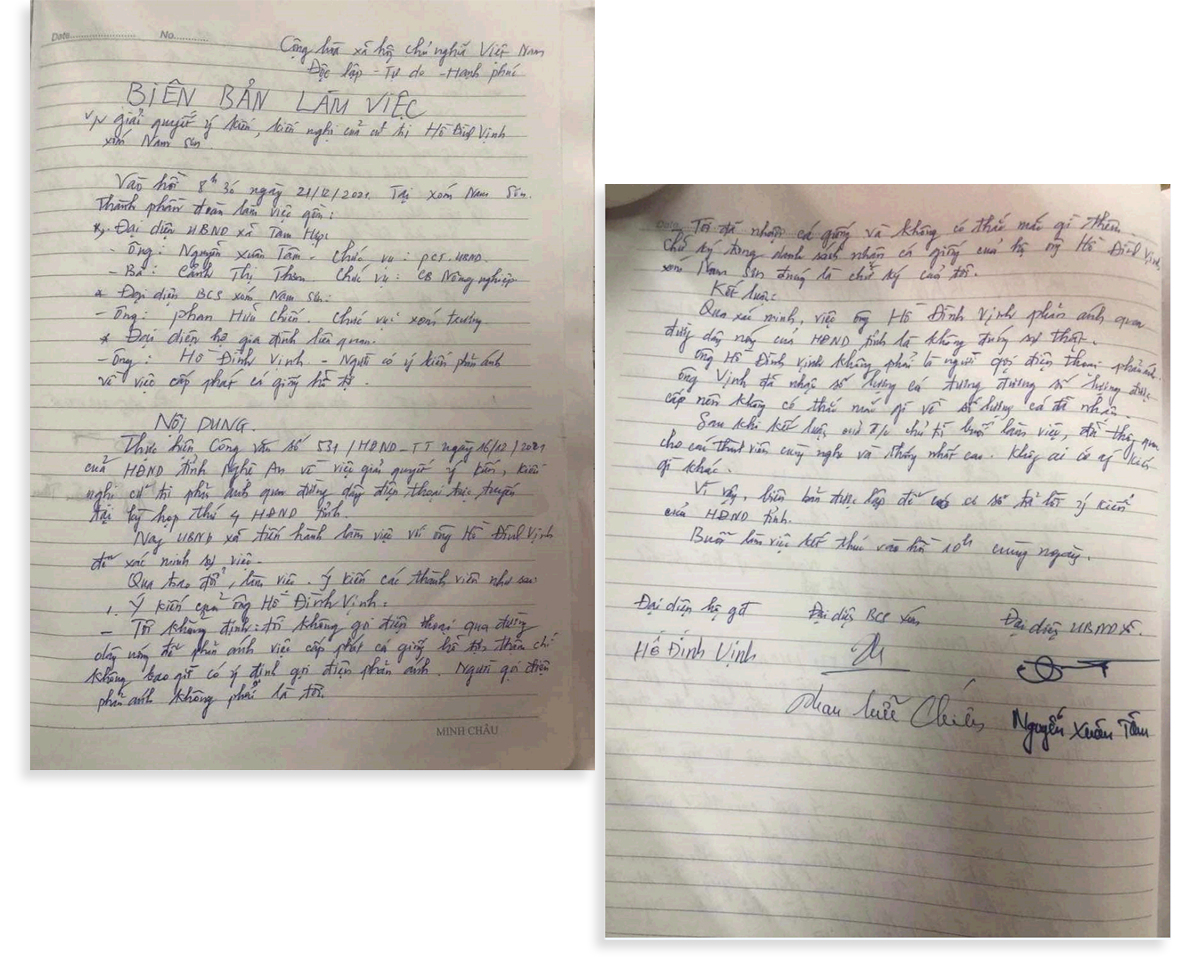 Date.................... No...........
Cộng hòa xã hội chủ nghĩa Việt Nam
Độc lập - Tự do - Hạnh phúc
BIÊN BẢN LÀM VIỆC
V/v giải quyết ý kiến, kiến nghị của cử tri Hồ Đình Vịnh
xóm Nam Sơn.
Vào hồi 8h 30 ngày 21/12/2021. Tại xóm Nam Sơn.
Thành phần đoàn làm việc gồm:
*. Đại diện UBND xã Tam Hợp
- Ông: Nguyễn Xuân Tâm - Chức vụ: PCT. UBND.
- Bà: Cảnh Thị Thơm Chức vụ: CB Nông nghiệp
* Đại diện BCS xóm Nam Sơn:
- Ông: Phan Hữu Chiến. Chức vụ: xóm trưởng
* Đại diện hộ gia đình liên quan.
- Ông: Hồ Đình Vinh - Người có ý kiến phản ánh
về việc cấp phát cá giống hỗ trợ.
NỘI DUNG.
Thực hiện Công văn số 531/HĐND-TT ngày 16/12/2021
của HĐND tỉnh Nghệ An về việc giải quyết ý kiến, kiến
nghị cử tri phản ánh qua đường dây điện thoại trực tuyến
tại kỳ họp thứ 4 HĐND tỉnh.
Nay UBND xã tiến hành làm việc với ông Hồ Đình Vịnh
để xác minh sự việc.
Qua trao đổi, làm việc. Ý kiến các thành viên như sau
1. Ý kiến của ông Hồ Đình Vịnh:
- Tôi khẳng định: tôi không gọi điện thoại qua đường
dây nóng để phản ánh việc cấp phát cá giống hỗ trợ thậm chí
không bao giờ có ý định gọi điện phản ánh. Người gọi điện
phản ánh không phải là tôi.
MINH CHÂU
Tôi đã nhận cá giống và không có thắc mắc gì thêm
chữ ký trong danh sách nhận cá giống của hộ ông Hồ Đình Vịnh
xóm Nam Sơn đúng là chữ ký của tôi.
Kết luận:
Qua xác minh, việc ông Hồ Đình Vịnh phản ánh qua
đường dây nóng của HĐND tỉnh là không đúng sự thật.
Ông Hồ Đình Vịnh không phải là người gọi điện thoại phản ánh.
Ông Vịnh đã nhận số lượng cá tương đương số lượng được
cấp nên không có thắc mắc gì về số lượng cá đã nhận.
Sau khi kết luận, chủ trì buổi làm việc, đã thông qua
cho các thành viên cùng nghe và thống nhất cao. Không ai có ý kiến
gì khác.
Vì vậy, biên bản được lập để có cơ sở trả lời ý kiến
của HĐND tỉnh.
Buổi làm việc kết thúc vào hồi 10h cùng ngày.
Đại diện hộ gđ Đại diện BCS xóm Đại diện UBND xã.
Hồ Đình Vinh
Phan Hữu Chiến Nguyễn Xuân Tâm